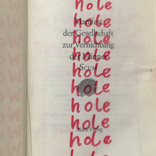 hole
hole
der Gesellschaft
hole
zur Vernichtung
hole
der
Scum
hole
hole
hole
hole
hole
hole